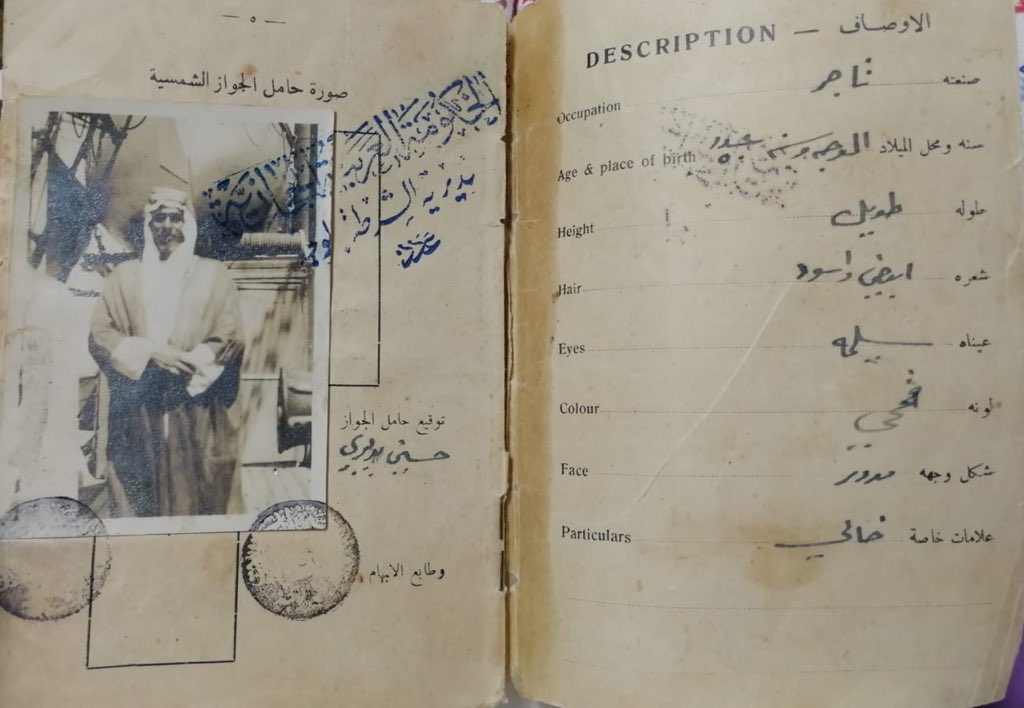 — ٥ —
صورة حامل الجواز الشمسية
مديرية الشرطة
توقيع حامل الجواز
حسين
وطابع الابهام
DESCRIPTION — الاوصاف
Occupation تاجر صنعته
Age & place of birth الوجه سنه ومحل الميلاد
Height طويل طوله
Hair ابيض واسود شعره
Eyes سليمه عيناه
Colour قمحي لونه
Face مدور شكل وجهه
Particulars خالي علامات خاصة